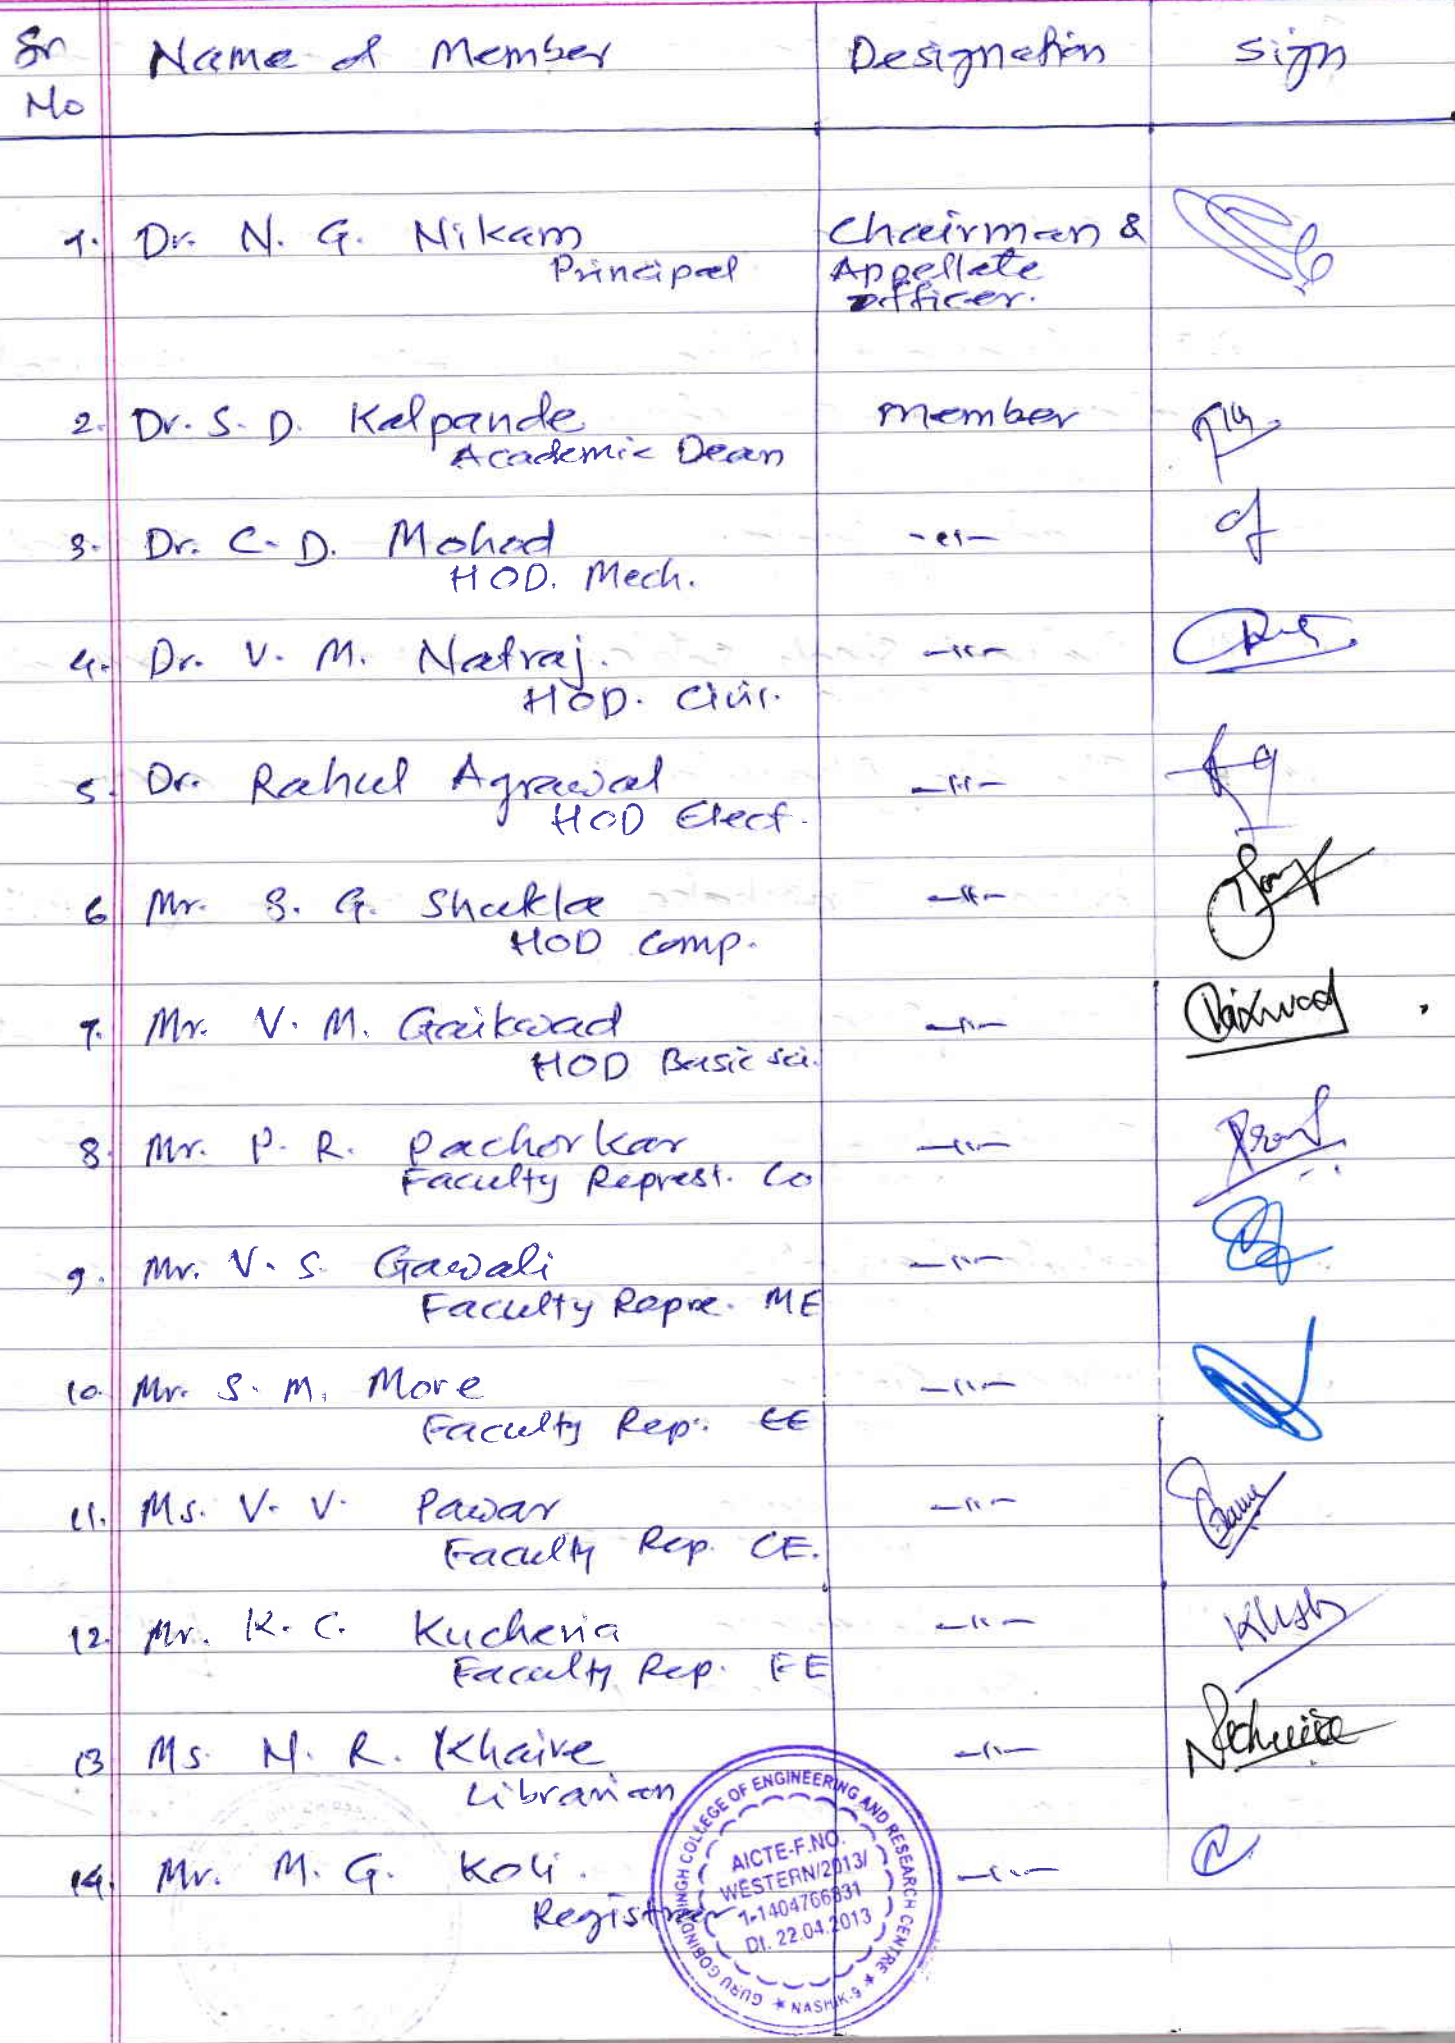 Sr Name of Member Designation Sign
No
1. Dr. N. G. Nikam Chairman &
Principal Appellate
officer.
2. Dr. S. D. Kalpande Member
Academic Dean
3. Dr. C. D. Mohod -"-
HOD. Mech.
4. Dr. V. M. Natraj. -"-
HOD. Civil.
5. Dr. Rahul Agrawal -"-
HOD Elect.
6 Mr. S. G. Shukla -"-
HOD Comp.
7. Mr. V. M. Gaikwad -"-
HOD Basic sci.
8. Mr. P. R. Pachorkar -"-
Faculty Represt. Co
9. Mr. V. S. Gawali -"-
Faculty Repre. ME
10. Mr. S. M. More -"-
Faculty Rep. EE
11. Ms. V. V. Pawar -"-
Faculty Rep. CE.
12. Mr. K. C. Kucheria -"-
Faculty Rep. FE
13 Ms. N. R. Khaire -"-
Librarian
14. Mr. M. G. Koli. -"-
Registrar
GURU GOBIND SINGH COLLEGE OF ENGINEERING AND RESEARCH CENTRE
★ NASHIK-9 ★
AICTE-F.NO.
WESTERN/2013/
1-1404766831
Dt. 22.04.2013